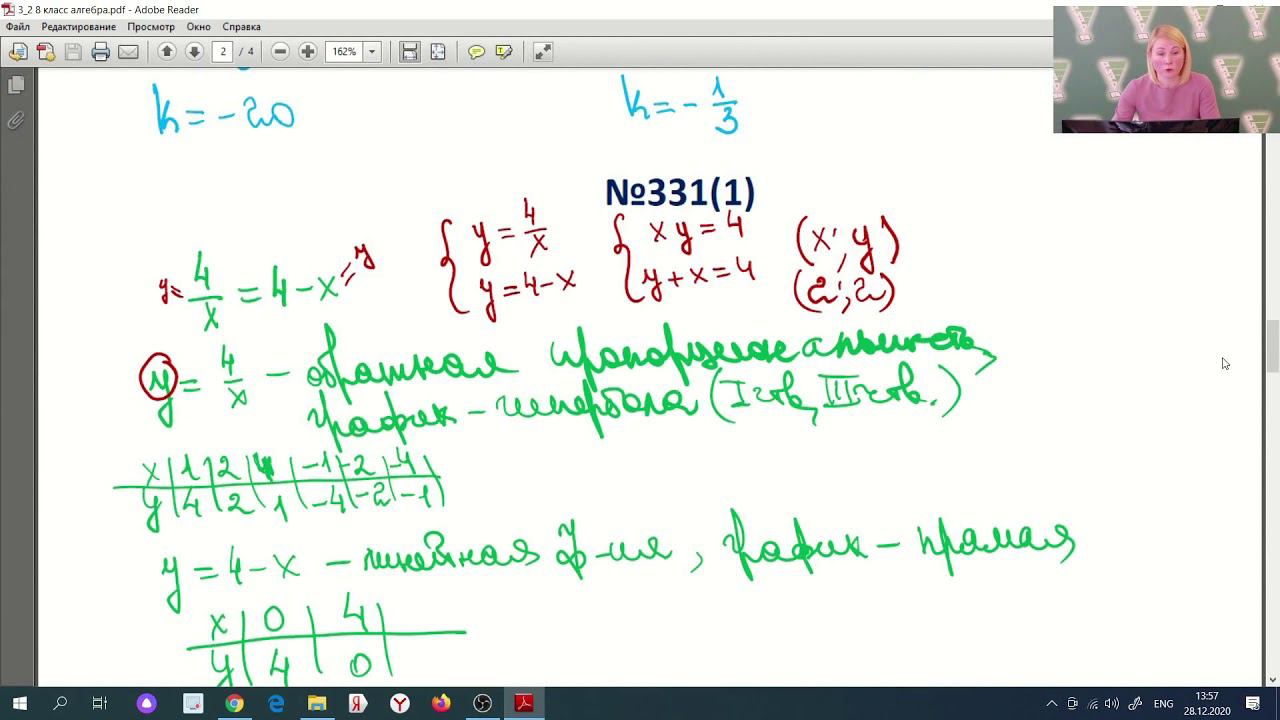 3_2 8 класс алгебра.pdf - Adobe Reader
Файл Редактирование Просмотр Окно Справка
2 / 4 162%
k = -20
k = - 1/3
№331(1)
{ y = 4/x
y = 4-x
{ xy = 4
y+x = 4
(x; y)
(2; 2)
y= 4/x = 4-x = y
y = 4/x - обратная пропорциональность,
график - гипербола (I чтв, III чтв.)
x | 1 | 2 | 4 | -1 | -2 | -4 |
y | 4 | 2 | 1 | -4 | -2 | -1 |
y = 4-x - линейная ф-ия, график - прямая
x | 0 | 4 |
y | 4 | 0 |
ENG
13:57
28.12.2020